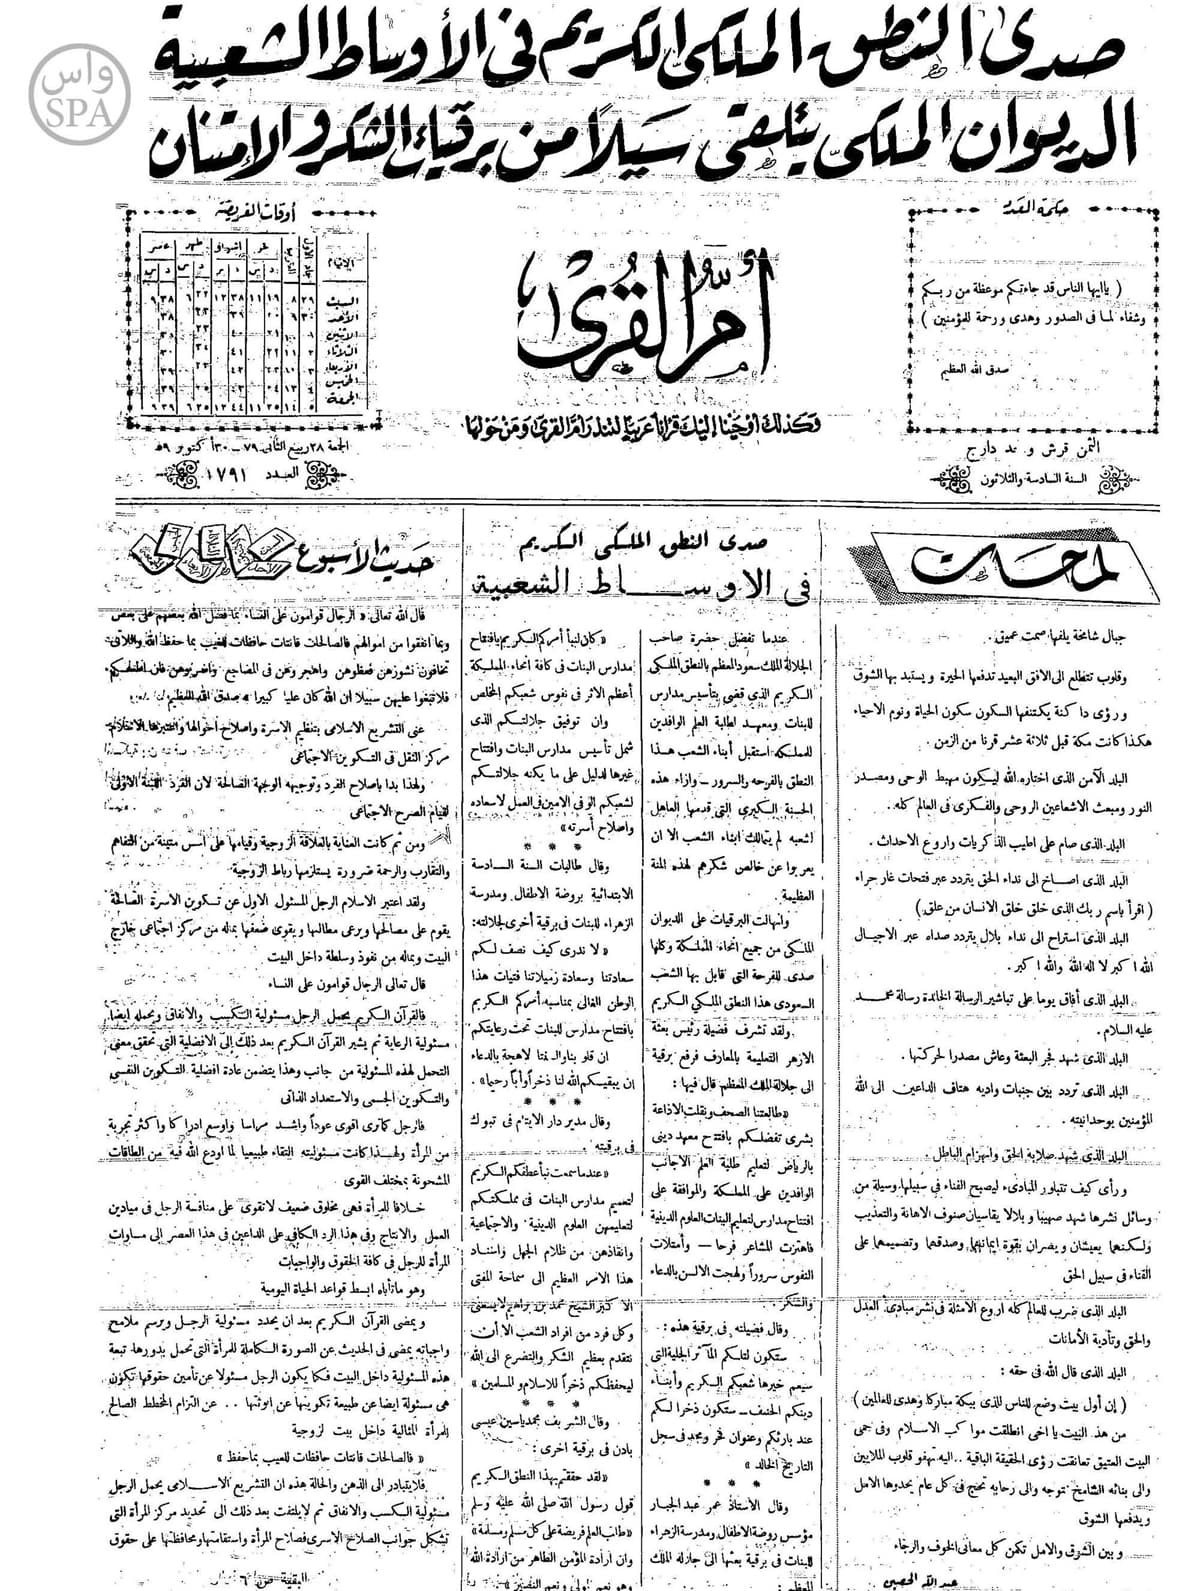 واس
SPA
صدى النطق الملكى الكريم فى الأوساط الشعبية
الديوان الملكى يتلقى سيلاً من برقيات الشكر والامتنان
حكمة العدد
( ياايها الناس قد جاءتكم موعظة من ربكم
وشفاء لما فى الصدور وهدى ورحمة للمؤمنين )
صدق الله العظيم
الثمن قرش و دارج
السنة السادسة والثلاثون
أم القرى
وكذلك أوحينا إليك قرآنا عربيا لتنذر أم القرى ومن حولها
أوقات الفريضة
الايام
السبت
الأحد
الاثنين
الثلاثاء
الأربعاء
الخميس
الجمعة
الجمعة ٢٨ ربيع الثانى ٧٩ – ٣٠ أكتوبر ٥٩
العدد ١٧٩١
لمحات
جبال شامخة يلفها صمت عميق .
وقلوب تتطلع الى الافق البعيد تدفعها الحيرة ويستبد بها الشوق
ورؤى داكنة يكتنفها السكون سكون الحياة ونوم الاحياء
هكذا كانت مكة قبل ثلاثة عشر قرنا من الزمن .
البلد الآمن الذى اختاره الله ليكون مهبط الوحى ومصدر
النور ومبعث الاشعاعين الروحى والفكرى فى العالم كله .
البلد الذى صام على اطيب الذكريات واروع الاحداث .
البلد الذى اصاخ الى نداء الحق يتردد عبر فتحات غار حراء
( اقرأ باسم ربك الذى خلق خلق الانسان من علق )
البلد الذى استراح الى نداء بلال يتردد صداه عبر الاجيال
الله اكبر لا اله الله والله اكبر .
البلد الذى أفاق يوما على تباشير الرسالة الخالدة رسالة محمد
عليه السلام .
البلد الذى شهد فجر البعثة وعاش مصدرا لحركتها .
البلد الذى تردد بين جنبات واديه هتاف الداعين الى الله
المؤمنين بوحدانيته .
البلد الذى شهد صلابة الحق وانهزام الباطل .
ورأى كيف تتبلور المبادىء ليصبح الفناء فى سبيلها وسيلة من
وسائل نشرها شهد صهيبا وبلالا يقاسيان صنوف الاهانة والتعذيب
ولكنهما يعيشان ويصران بقوة ايمانهما وصدقهما وتصميمهما على
الفناء فى سبيل الحق
البلد الذى ضرب للعالم كله اروع الأمثلة فى نشر مبادىء العدل
والحق وتأدية الأمانات
البلد الذى قال الله فى حقه :
( إن أول بيت وضع للناس للذى ببكة مباركا وهدى للعالمين )
من هذ البيت يا اخى انطلقت مواكب الاسلام وفى حمى
البيت العتيق تعانقت رؤى الحقيقة الباقية .. اليه تهفو قلوب الملايين
والى بنائه الشامخ تتوجه والى رحابه تحج فى كل عام يحدوها الامل
ويدفعها الشوق
وبين الشوق والامل تكمن كل معانى الخوف والرجاء
عبد الله الحصين
صدى النطق الملكى الكريم
فى الاوساط الشعبية
عندما تفضل حضرة صاحب
الجلالة الملك سعود المعظم بالنطق الملكى
الكريم الذى قضى بتأسيس مدارس
للبنات ومعهد لطلبة العلم الوافدين
للمملكة استقبل أبناء الشعب هذا
النطق بالفرحه والسرور – وازاء هذه
الحسنة الكبيرى التى قدمها العاهل
لشعبه لم يتمالك ابناء الشعب الا ان
يعربوا عن خالص شكرهم لهذه المنة
العظيمة .
وانهالت البرقيات على الديوان
الملكى من جميع انحاء المملكة وكلها
صدى للفرحة التى قابل بها الشعب
السعودى هذا النطق الملكى الكريم
ولقد تشرف فضيلة رئيس بعثة
الازهر التعليمة بالمعارف فرفع برقية
الى جلالة الملك المعظم قال فيها :
« طالعتنا الصحف ونقلت الاذاعة
بشرى تفضلكم بافتتاح معهد دينى
بالرياض لتعليم طلبة العلم الاجانب
الوافدين على المملكة والموافقة على
افتتاح مدارس لتعليم البنات العلوم الدينية
فاهتزت المشاعر فرحا – وأمتلات
النفوس سروراً ولهجت الالسن بالدعاء
والشكر .
وقال فضيلته فى برقية هذه :
ستكون لتلكم المآثر الجلية التى
سيعم خيرها شعبكم الكريم وأبناء
دينكم الحنيف – ستكون ذخرا لكم
عند بارئكم وعنوان فخر ومجد فى سجل
التاريخ الخالد »
* * *
وقال الأستاذ عمر عبد الجبار
مؤسس روضة الاطفال ومدرسة الزهراء
للبنات فى برقية بعثها الى جلالة الملك
المعظم :
« كان لنبأ أمركم الكريم بافتتاح
مدارس البنات فى كافة انحاء المملكة
أعظم الاثر فى نفوس شعبكم المخلص
وان توفيق جلالتكم الذى
شمل تأسيس مدارس البنات وافتتاح
غيرها لدليل على ما يكنه جلالتكم
لشعبكم الوفى الامين فى العمل لاسعاده
واصلاح أسرته »
* * *
وقال طالبات السنة السادسة
الابتدائية بروضة الاطفال ومدرسة
الزهراء للبنات فى برقية أخرى لجلالته :
« لا ندرى كيف نصف لكم
سعادتنا وسعادة زميلاتنا فتيات هذا
الوطن الغالى بمناسبة أمركم الكريم
بافتتاح مدارس للبنات تحت رعايتكم
ان قلوبنا لاهجة بالدعاء
ان يبقيكم الله لنا ذخراً وأباً رحيما » .
* * *
وقال مدير دار الايتام فى تبوك
فى برقيته .
« عندما سمعت نبأ عطفكم الكريم
لتعميم مدارس البنات فى مملكتكم
لتعليمهن العلوم الدينية والاجتماعية
وانقاذهن من ظلام الجهل واسناد
هذا الامر العظيم الى سماحة المفتى
الاكبر الشيخ محمد بن براهيم لا يسعنى
وكل فرد من افراد الشعب الا أن
نتقدم بعظيم الشكر والتضرع الى الله
ليحفظكم ذخراً للاسلام والمسلمين »
* * *
وقال الشريف محمد ياسين عيسى
بادن فى برقية اخرى :
« لقد حققتم بهذا النطق الكريم
قول رسول الله صلى الله عليه وسلم
« طلب العلم فريضة على كل مسلم ومسلمة »
وان ارادة المؤمن الطاهر من ارادة الله
حديث الأسبوع
قال الله تعالى « الرجال قوامون على النساء بما فضل الله بعضهم على بعض
وبما انفقوا من اموالهم فالصالحات قانتات حافظات للغيب بما حفظ الله واللاتى
تخافون نشوزهن فعظوهن واهجروهن فى المضاجع واضربوهن فان اطعنكم
فلا تبغوا عليهن سبيلا ان الله كان عليا كبيرا » صدق الله العظيم
عنى التشريع الاسلامى بتنظيم الاسرة واصلاح أحوالها واعتبرها الاسلام
مركز الثقل فى التكوين الاجتماعى
ولهذا بدا باصلاح الفرد وتوجيهه الوجهة الصالحة لان الفرد اللبنة الاولى
لقيام الصرح الاجتماعى
ومن ثم كانت العناية بالعلاقة الزوجية وقيامها على أسس متينة من التفاهم
والتقارب والرحمة ضرورة يستلزمها رباط الزوجية .
ولقد اعتبر الاسلام الرجل المسئول الاول عن تكوين الاسرة الصالحة
يقوم على مصالحها ويرعى مطالبها ويقوى ضعفها بماله من مركز اجتماعى خارج
البيت وبماله من نفوذ وسلطة داخل البيت
قال تعالى الرجال قوامون على النساء
فالقرآن الكريم يحمل الرجل مسئولية التكسب والانفاق ويحمله ايضا
مسئولية الرعاية ثم يشير القرآن الكريم بعد ذلك إلى الافضلية التى تحقق معنى
التحمل لهذه المسئولية من جانب وهذا يتضمن عادة افضلية التكوين النفسى
والتكوين الجسمى والاستعداد الذاتى
فالرجل كما ترى اقوى عوداً واشد مراسا واوسع ادراكا واكثر تجربة
من المرأة ولهذا كانت مسئوليته التقاء طبيعيا لما اودع الله فيه من الطاقات
المشحونة بمختلف القوى
خلافا للمرأة فهى مخلوق ضعيف لا تقوى على منافسة الرجل فى ميادين
العمل والانتاج وفى هذا الرد الكافى على الداعين فى هذا العصر الى مساوات
المرأة للرجل فى كافة الحقوق والواجبات
وهو ما تأباه ابسط قواعد الحياة اليومية
ويمضى القرآن الكريم بعد ان يحدد مسئولية الرجل ويرسم ملامح
واجباته يمضى فى الحديث عن الصورة الكاملة للمرأة التى تحمل بدورها تبعة
هذه المسئولية داخل البيت فكما يكون الرجل مسئولا عن تأمين حقوقها تكون
هى مسئولة ايضا عن طبيعة تكوينها عن انوثتها .. عن التزام المخطط الصالح
للمرأة المثالية داخل بيت لزوجية
« فالصالحات قانتات حافظات للغيب بما حفظ »
فلا يتبادر الى الذهن والحالة هذه ان التشريع الاسلامى يحمل الرجل
مسئولية الكسب والانفاق ثم لا يلتفت بعد ذلك الى تحديد مركز المرأة التى
تشكل جوانب الصلاح الاسرى فصلاح المرأة واستقامتها ومحافظتها على حقوق
البقية ص ٦